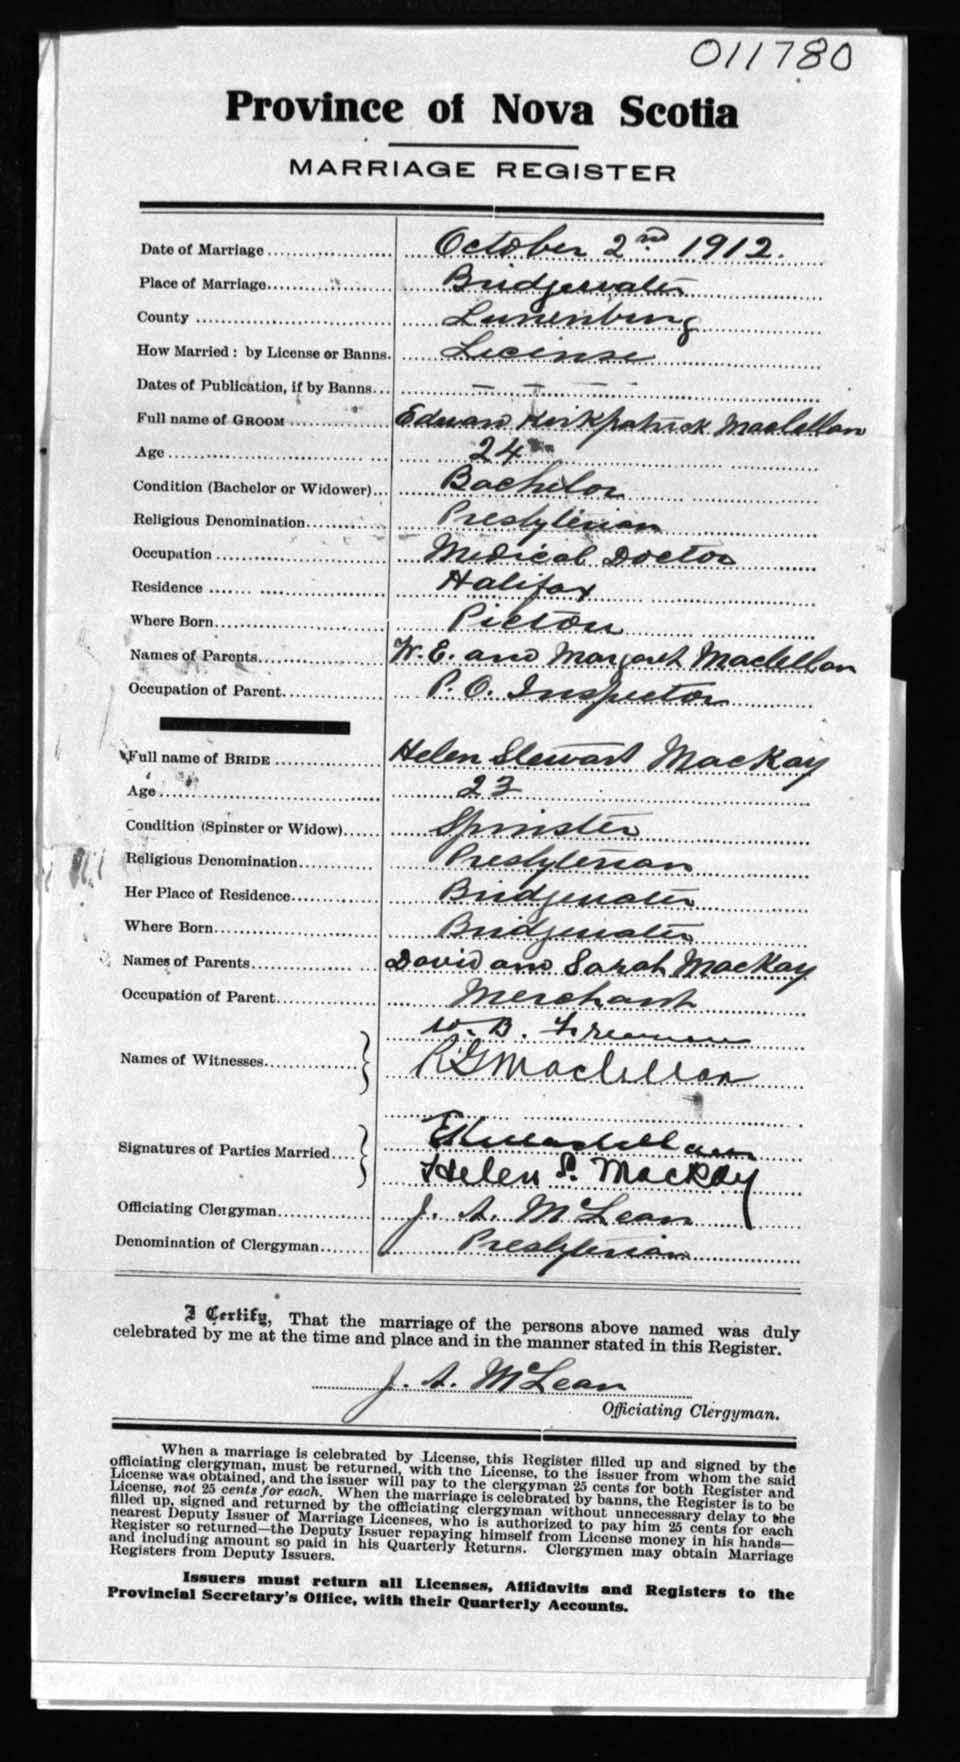 011780
Province of Nova Scotia
MARRIAGE REGISTER
Date of Marriage October 2nd 1912.
Place of Marriage Bridgewater
County Lunenburg
How Married : by License or Banns. License
Dates of Publication, if by Banns — — — —
Full name of GROOM Edward Kirkpatrick Maclellan
Age 24
Condition (Bachelor or Widower) Bachelor
Religious Denomination Presbyterian
Occupation Medical Doctor
Residence Halifax
Where Born Pictou
Names of Parents W. E. and Margaret Maclellan
Occupation of Parent P. O. Inspector
Full name of BRIDE Helen Stewart MacKay
Age 23
Condition (Spinster or Widow) Spinster
Religious Denomination Presbyterian
Her Place of Residence Bridgewater
Where Born Bridgewater
Names of Parents David and Sarah MacKay
Occupation of Parent Merchant
W. B. Freeman
Names of Witnesses R G Maclellan
Signatures of Parties Married E K Maclellan
Helen S. MacKay
Officiating Clergyman J. A. McLean
Denomination of Clergyman Presbyterian
I Certify, That the marriage of the persons above named was duly
celebrated by me at the time and place and in the manner stated in this Register.
J. A. McLean
Officiating Clergyman.
When a marriage is celebrated by License, this Register filled up and signed by the
officiating clergyman, must be returned, with the License, to the issuer from whom the said
License was obtained, and the issuer will pay to the clergyman 25 cents for both Register and
License, not 25 cents for each. When the marriage is celebrated by banns, the Register is to be
filled up, signed and returned by the officiating clergyman without unnecessary delay to the
nearest Deputy Issuer of Marriage Licenses, who is authorized to pay him 25 cents for each
Register so returned—the Deputy Issuer repaying himself from License money in his hands—
and including amount so paid in his Quarterly Returns. Clergymen may obtain Marriage
Registers from Deputy Issuers.
Issuers must return all Licenses, Affidavits and Registers to the
Provincial Secretary's Office, with their Quarterly Accounts.